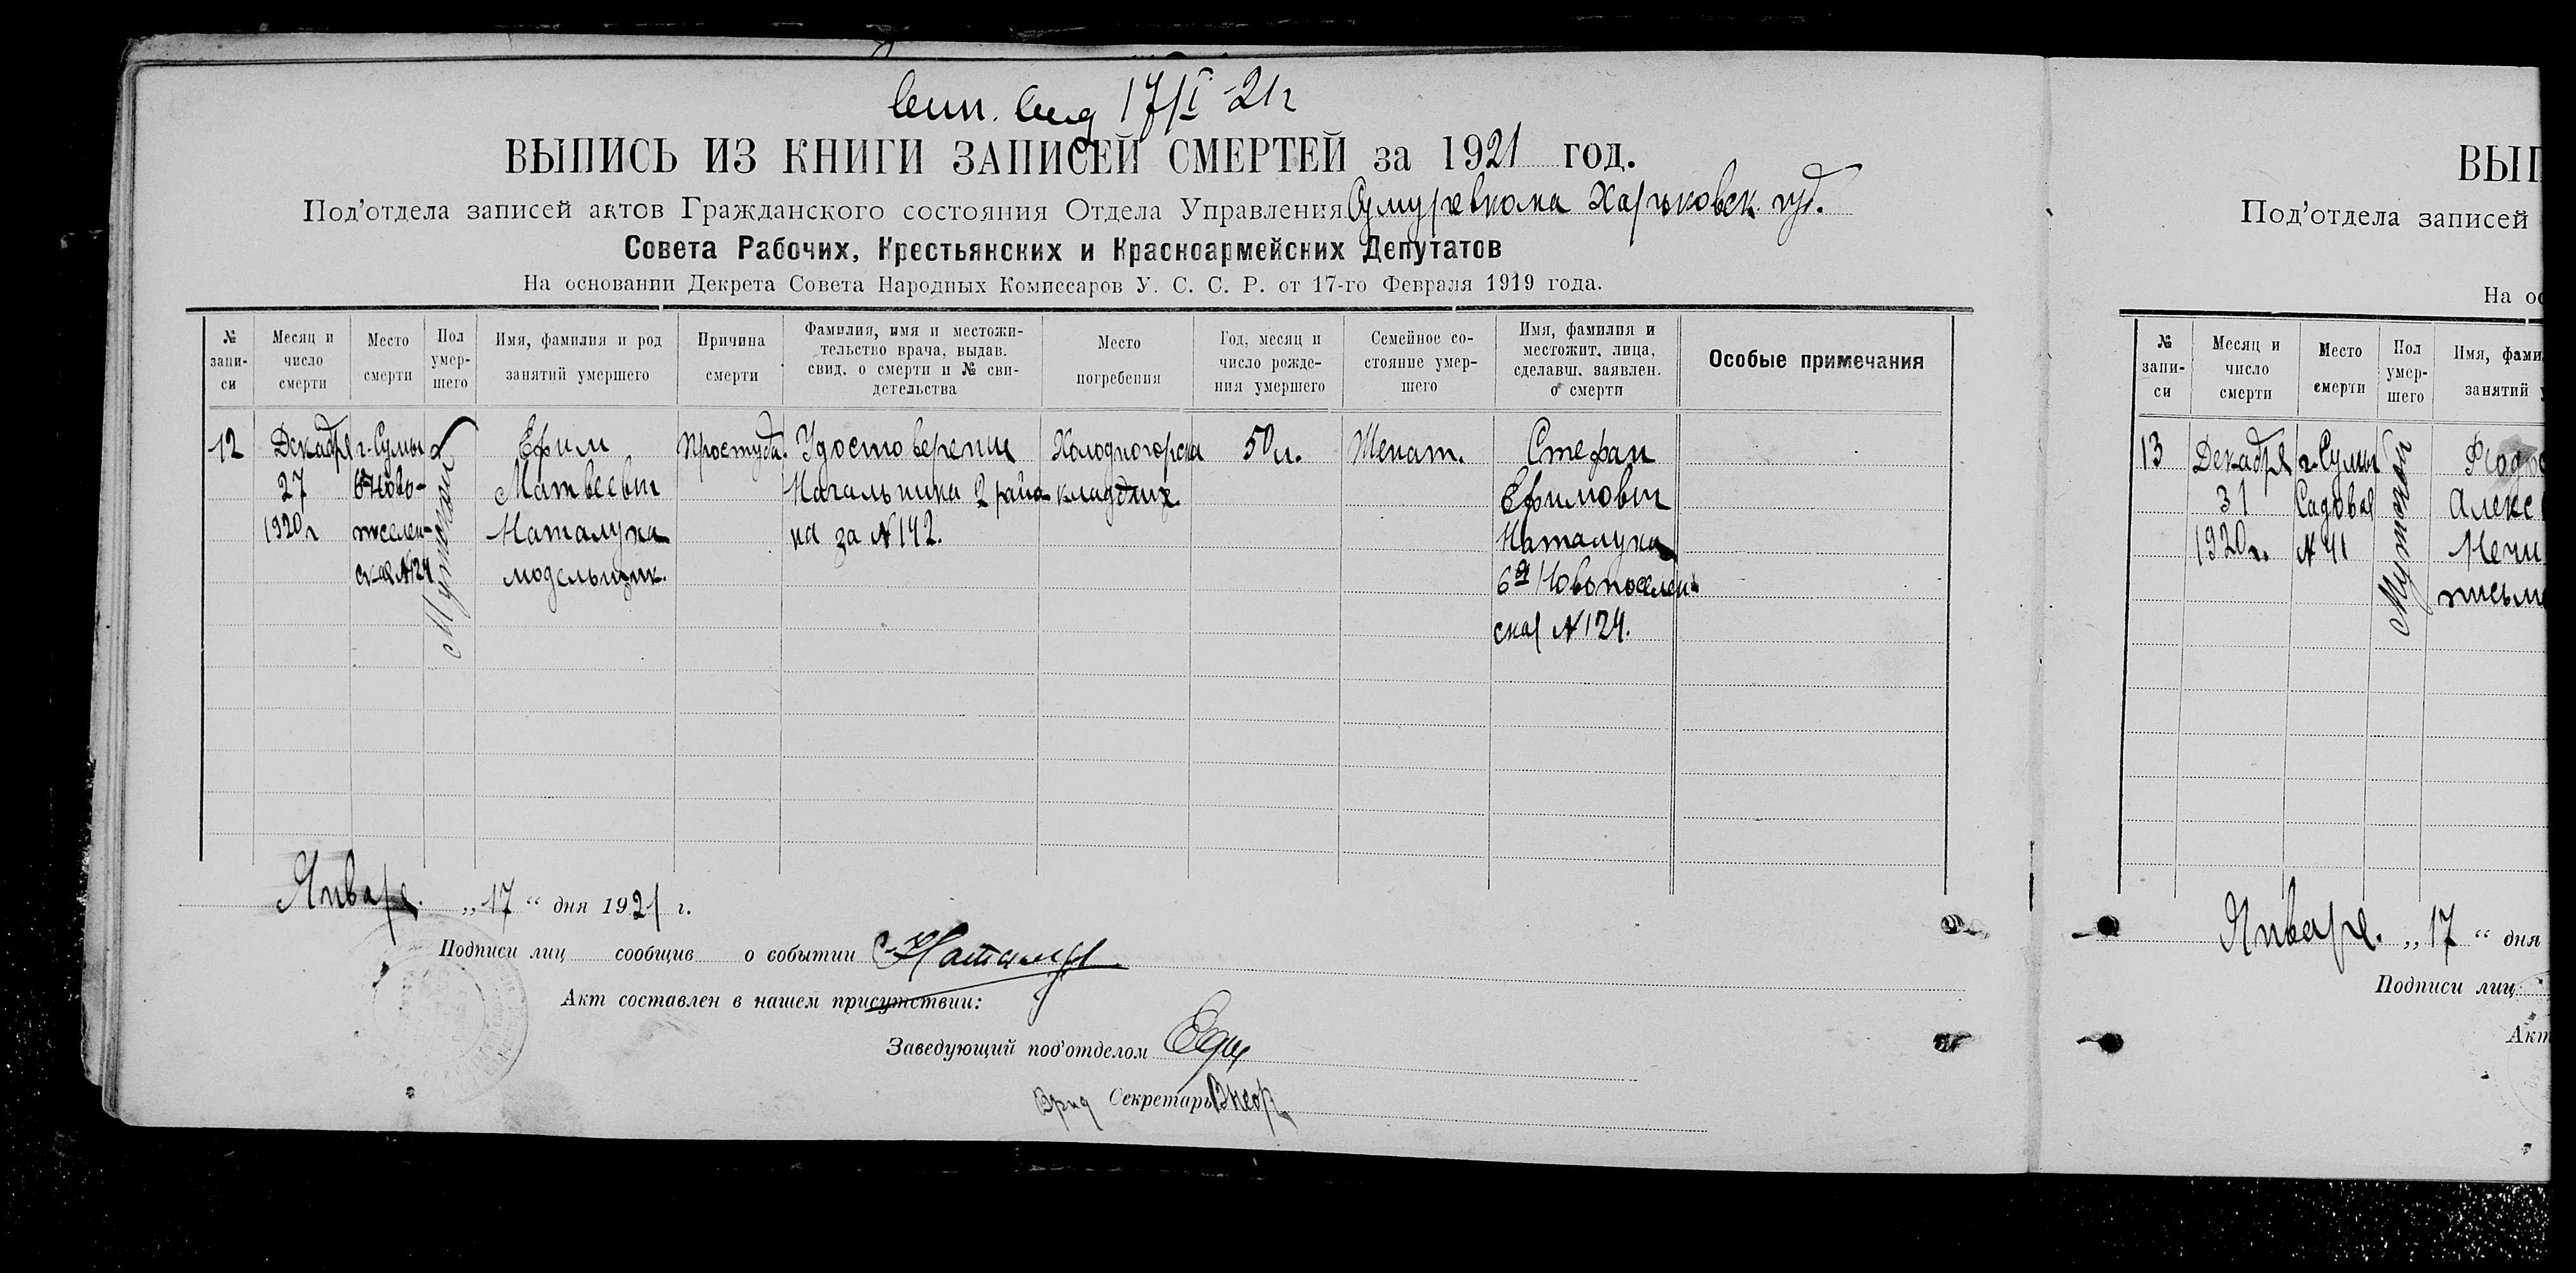 17/I-21г
ВЫПИСЬ ИЗ КНИГИ ЗАПИСЕЙ СМЕРТЕЙ за 1921 год.
Под'отдела записей актов Гражданского состояния Отдела Управления Сумуревкома Харьковск. губ.
Совета Рабочих, Крестьянских и Красноармейских Депутатов
На основании Декрета Совета Народных Комиссаров У. С. С. Р. от 17-го Февраля 1919 года.
№ запи-
си
Месяц и
число
смерти
Место
смерти
Пол
умер-
шего
Имя, фамилия и род
занятий умершего
Причина
смерти
Фамилия, имя и местожи-
тельство врача, выдав.
свид. о смерти и № сви-
детельства
Место
погребения
Год, месяц и
число рожде-
ния умершего
Семейное со-
стояние умер-
шего
Имя, фамилия и
местожит. лица,
сделавш. заявлен.
о смерти
Особые примечания
12
Декабря
27
1920г
г. Сумы
6я Ново-
поселен-
ская №124
Мужской
Ефим
Матвеевич
Наталуха
модельщик.
Простуда.
Удостоверение
Начальника 2 райо
на за №142.
Холодногорск
кладбище
50 л.
Женат.
Стефан
Ефимович
Наталуха
6я Новопоселен-
ская №124.
Января. „17“ дня 1921 г.
Подписи лиц сообщив о событии С Наталу
Акт составлен в нашем присутствии:
Заведующий под'отделом
Врид Секретарь
ВЫП
Под'отдела записей
На ос
№
запи-
си
Месяц и
число
смерти
Место
смерти
Пол
умер-
шего
Имя, фами
занятий у
13
Декабря
31
1920г.
г. Сумы
Садовая
№ 41
Мужской
Феод
Алексе
Нечи
письм
Января. „17“ дня
Подписи лиц
Акт